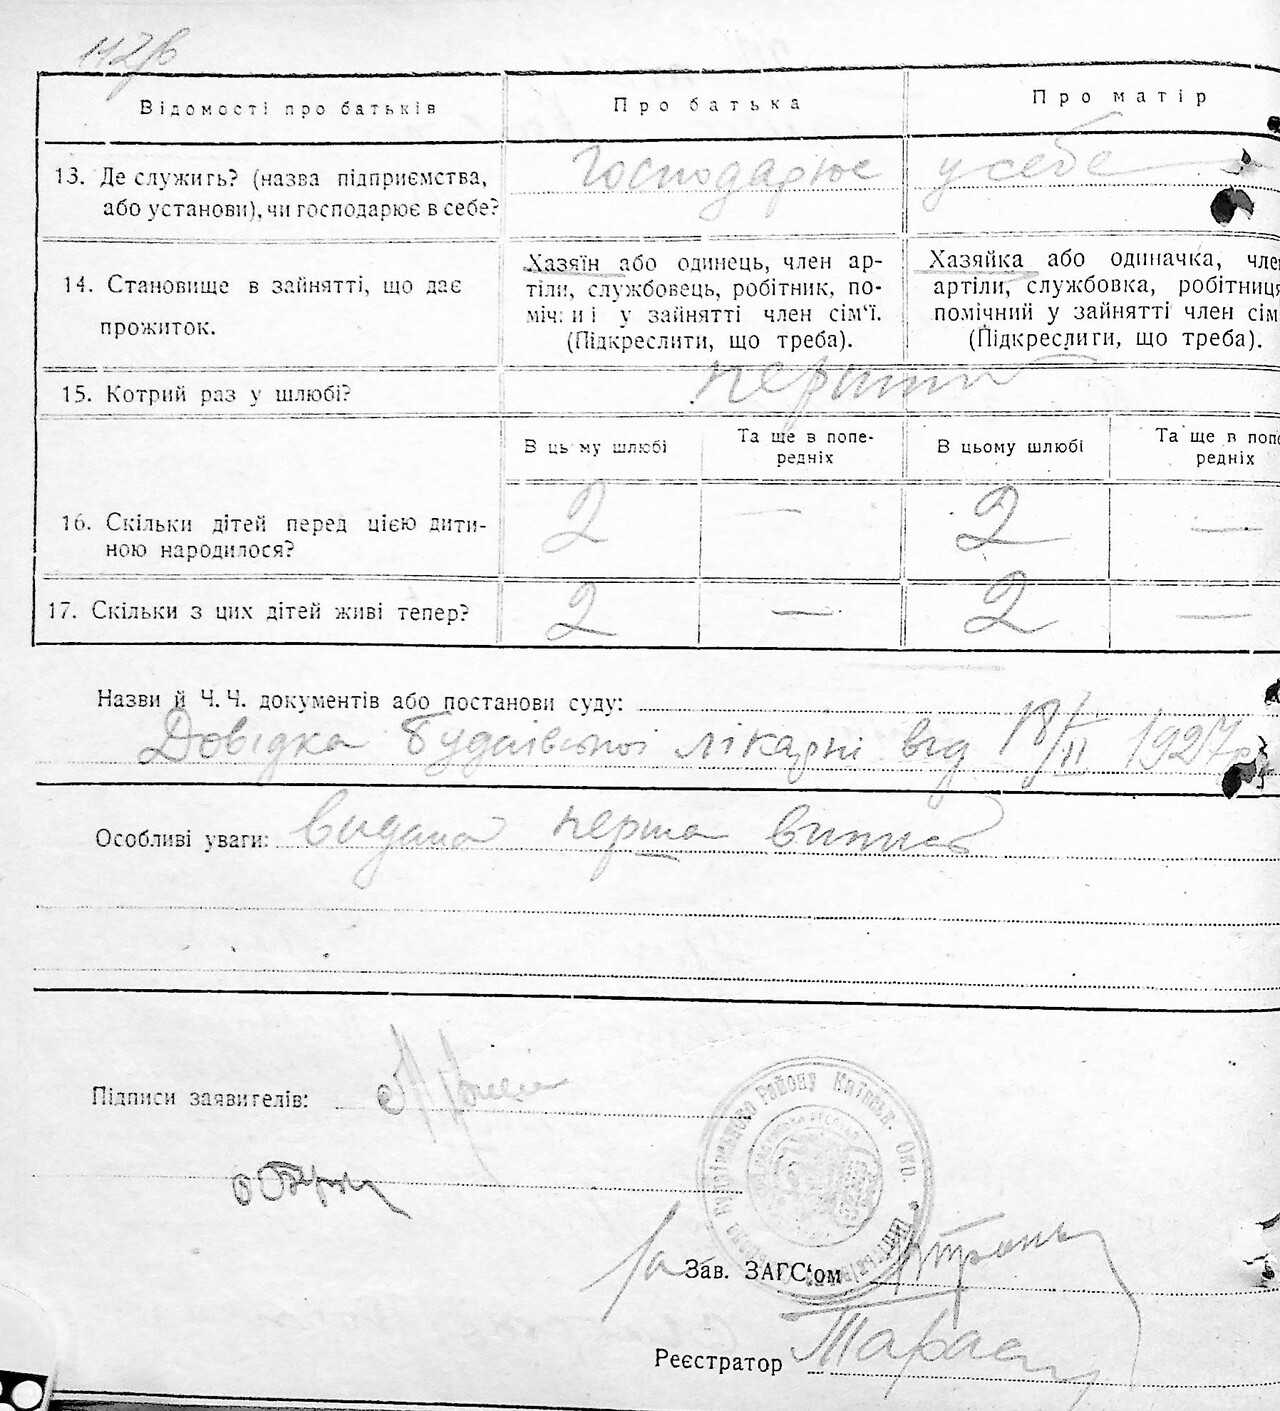 112 зв
Відомості про батьків
Про батька
Про матір
13. Де служить? (назва підприємства,
або установи), чи господарює в себе?
господарює у себе
14. Становище в зайнятті, що дає
прожиток.
Хазяїн або одинець, член ар-
тіли, службовець, робітник, по-
міч и і у зайнятті член сім'ї.
(Підкреслити, що треба).
Хазяйка або одиначка, член
артіли, службовка, робітниця
помічний у зайнятті член сім
(Підкреслити, що треба).
15. Котрий раз у шлюбі?
перший
В ць му шлюбі
Та ще в попе-
редніх
В цьому шлюбі
Та ще в попе
редніх
16. Скільки дітей перед цією дити-
ною народилося?
2 — 2 —
17. Скільки з цих дітей живі тепер?
2 — 2 —
Назви й Ч. Ч. документів або постанови суду:
Довідка Будаївської лікарні від 18/II 1927р
Особливі уваги: видана перша випись
Підписи заявителів:
Району Київськ. Окр.
Зав. ЗАГС'ом
Реєстратор Тарас